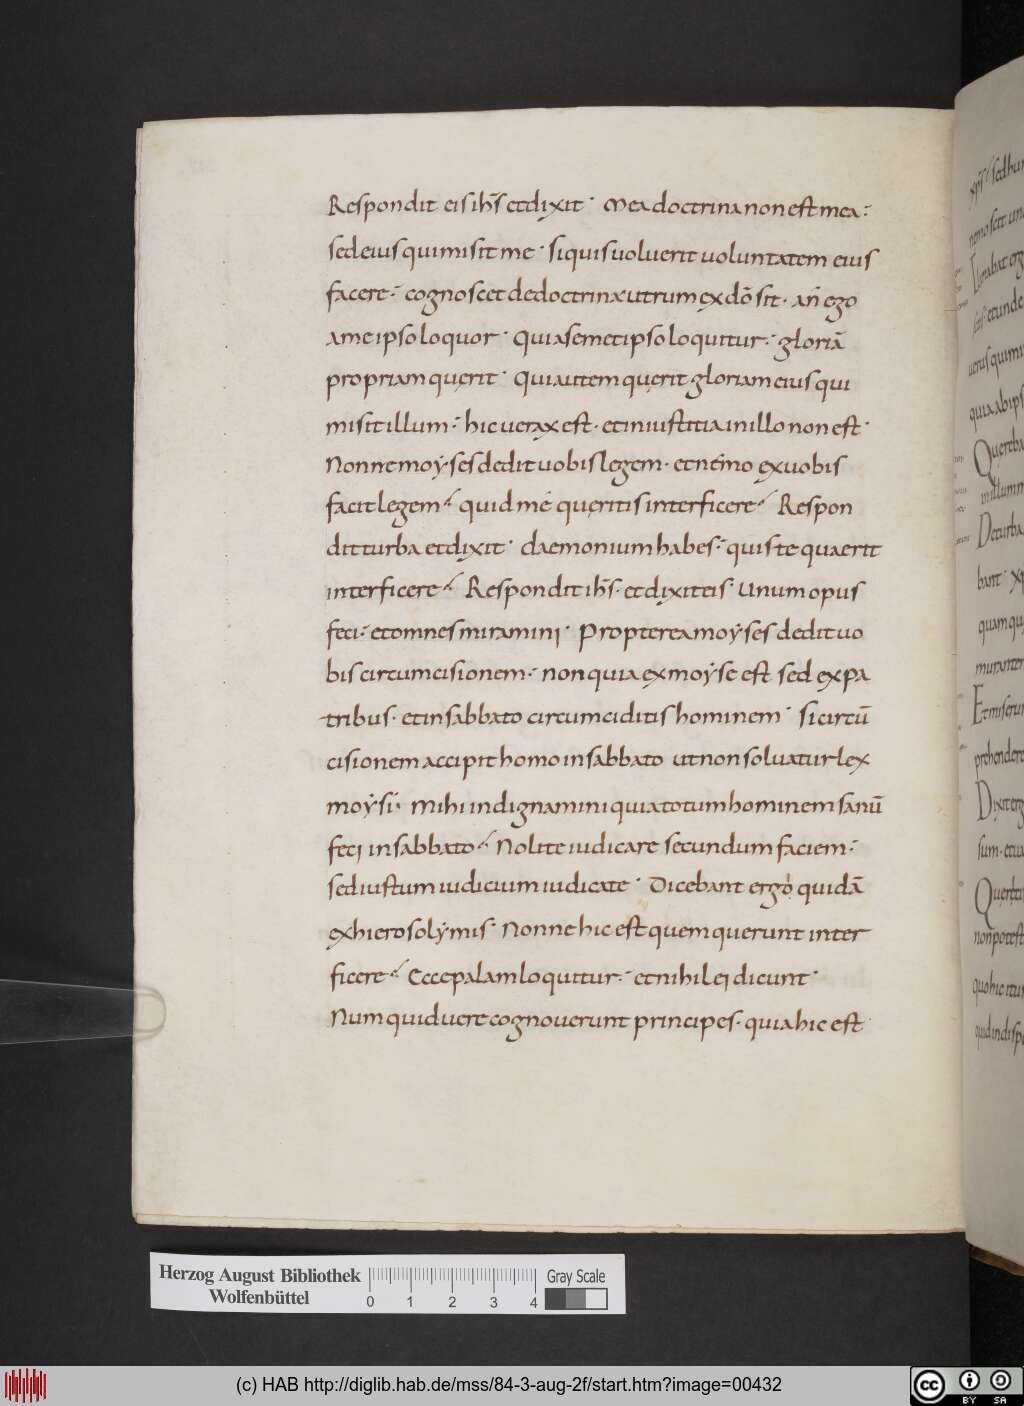 Respondit eis ihs̄ et dixit· Mea doctrina non est mea·
sed eius qui misit me· si quis voluerit voluntatem eius
facere· cognoscet de doctrina utrum ex dō sit· an̄ ego
a me ipso loquor· Qui a semetipso loquitur· gloriā
propriam querit· Qui autem querit gloriam eius qui
misit illum· hic verax est· et iniustitia in illo non est·
Nonne moẏses dedit vobis legem· et nemo ex vobis
facit legem· quid me queritis interficere· Respon
dit turba et dixit· daemonium habes· quis te quaerit
interficere· Respondit ihs̄· et dixit eis· Unum opus
feci· et omnes miramini· Propterea moẏses dedit vo
bis circumcisionem· non quia ex moẏse est sed ex pa
tribus· et in sabbato circumciditis hominem· si circū
cisionem accipit homo in sabbato ut non solvatur lex
moẏsi· Mihi indignamini quia totum hominem sanū
feci in sabbato· Nolite iudicare secundum faciem·
sed iustum iudicium iudicate· Dicebant ergo quidā
ex hierosolẏmis· Nonne hic est quem querunt inter
ficere· Ecce palam loquitur· et nihil ei dicunt·
Num quid vere cognoverunt principes· quia hic est
Herzog August Bibliothek
Wolfenbüttel
0 1 2 3 4
Gray Scale
(c) HAB http://diglib.hab.de/mss/84-3-aug-2f/start.htm?image=00432
cc BY SA